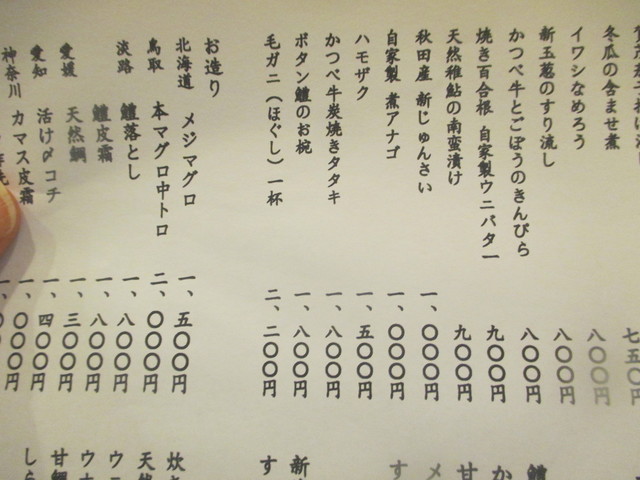 七五〇円
冬瓜の含ませ煮 八〇〇円
イワシなめろう 八〇〇円
新玉葱のすり流し 八〇〇円
かつべ牛とごぼうのきんぴら 九〇〇円
焼き百合根 自家製ウニバター 九〇〇円
天然稚鮎の南蛮漬け
秋田産 新じゅんさい 一、〇〇〇円
自家製 煮アナゴ 一、〇〇〇円
ハモザク 一、五〇〇円
かつべ牛炭焼きタタキ 一、八〇〇円
ボタン鱧のお椀 一、八〇〇円
毛ガニ(ほぐし)一杯 二、二〇〇円
お造り
北海道 メジマグロ 一、五〇〇円
鳥取 本マグロ中トロ 二、〇〇〇円
淡路 鱧落とし 一、八〇〇円
鱧皮霜 一、八〇〇円
愛媛 天然鯛 一、三〇〇円
愛知 活け〆コチ 一、四〇〇円
神奈川 カマス皮霜 一、〇〇〇円
鱧
か
甘
メ
す
新
す
炊き
天然
ウニ
ウナ
甘鯛
しら